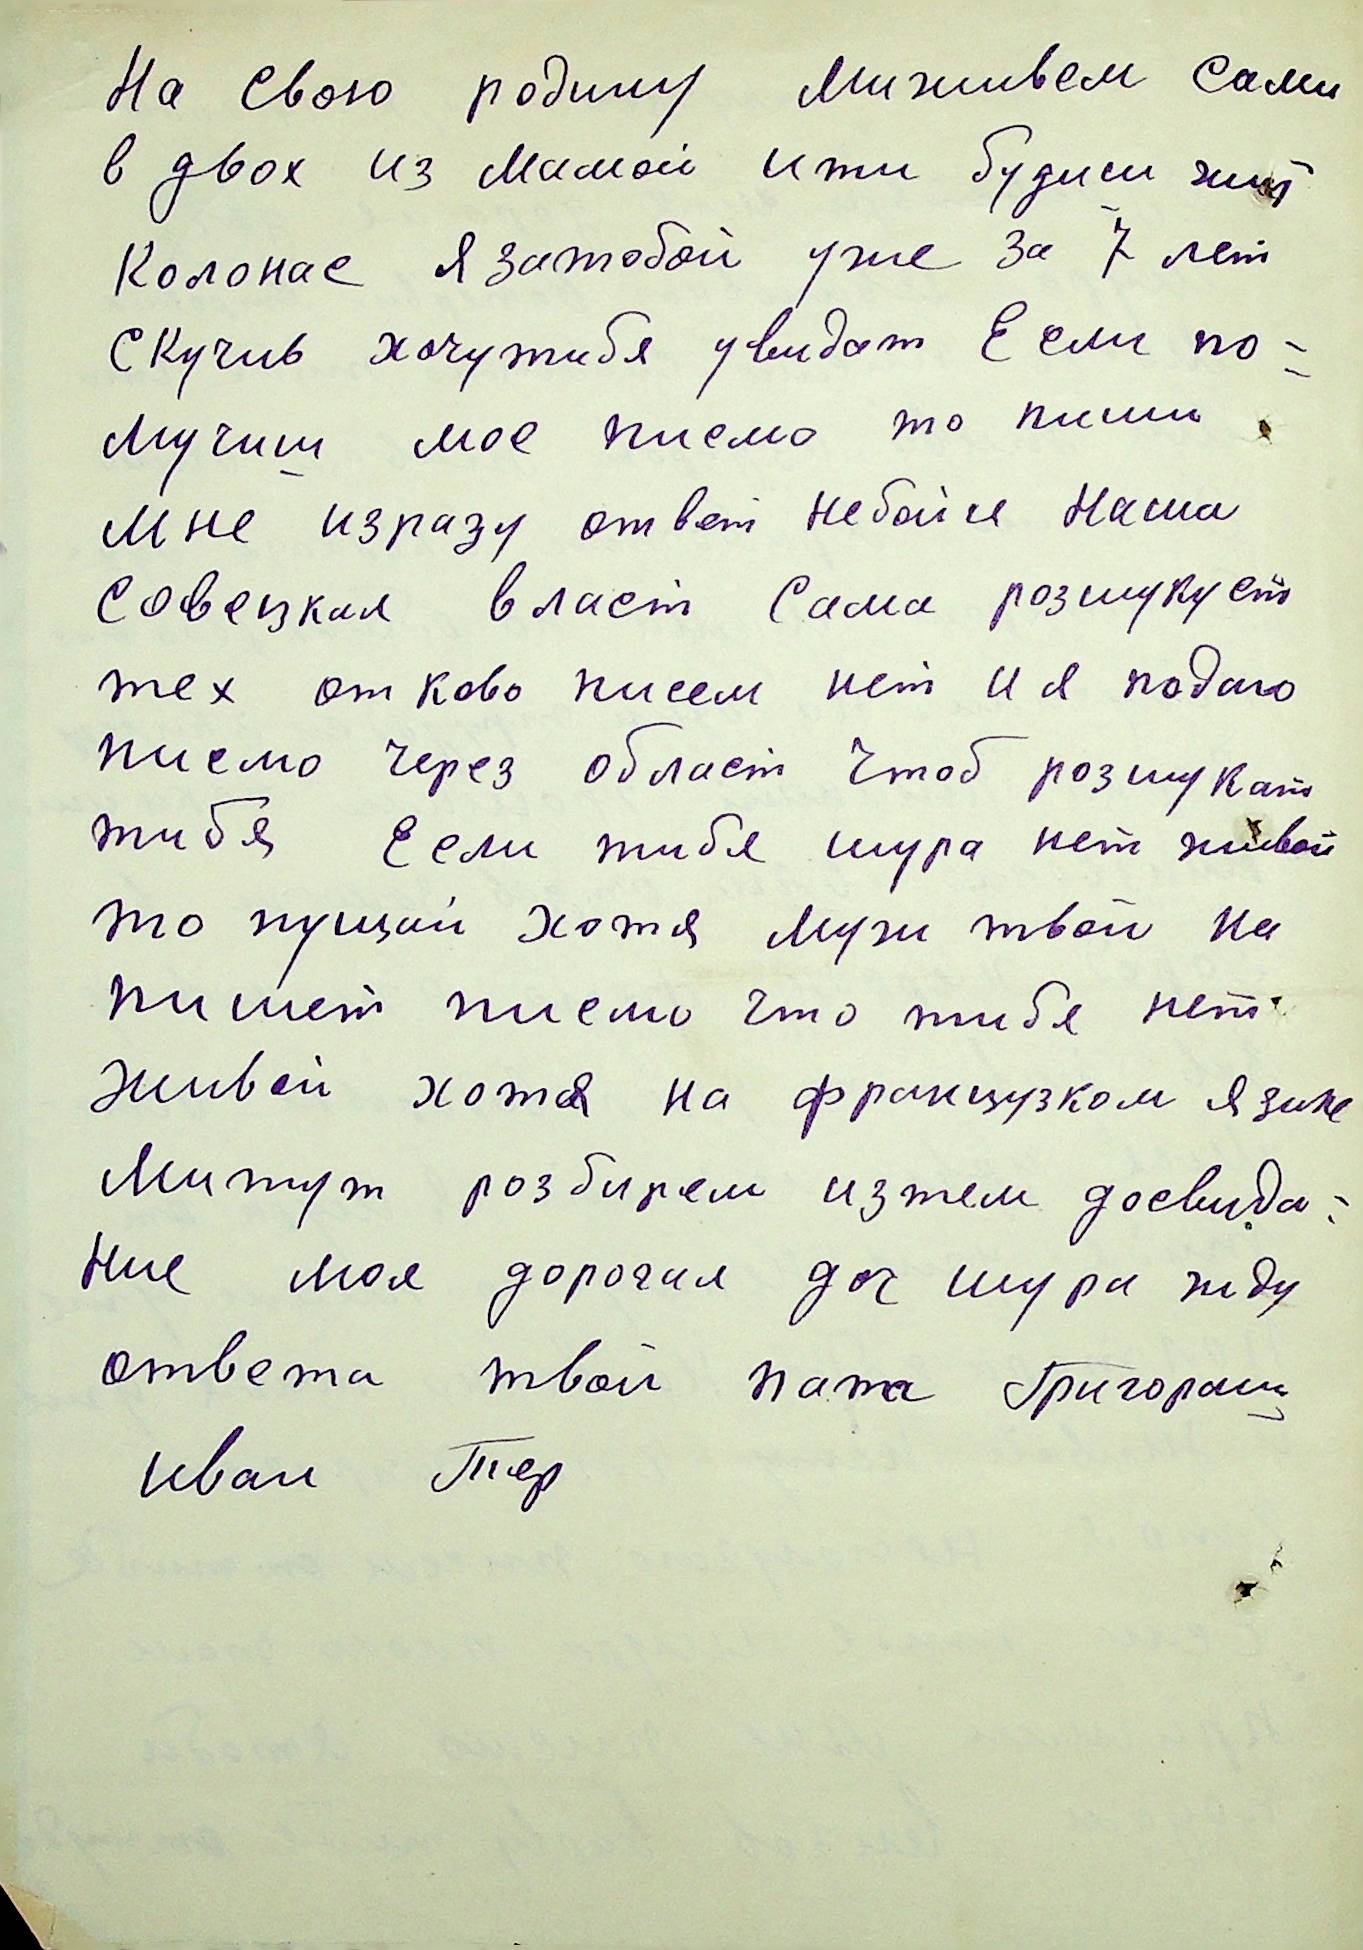 На свою родину миживем сами
в двох из мамой ити будиш жит
колонас я затобой уже за 7 лет
скучив хочутибя увидат Если по=
лучиш мое писмо то пиши
мне изразу ответ небойся Наша
совецкая власт сама розшукует
тех отково писем нет и я подаю
писмо через област чтоб розшукат
тибя Если тибя шура нет живой
то пущай хотя муж твой на
пишет писмо что тибя нет
живой хотя на французком язике
митут розбирем изтем досвида=
ние моя дорогая доч шура жду
ответа твой папа Григораш
иван